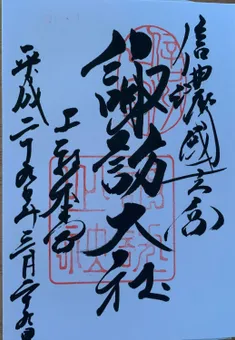 信濃國一之宮
諏訪大社
上社本宮
平成二十九年三月二十九日